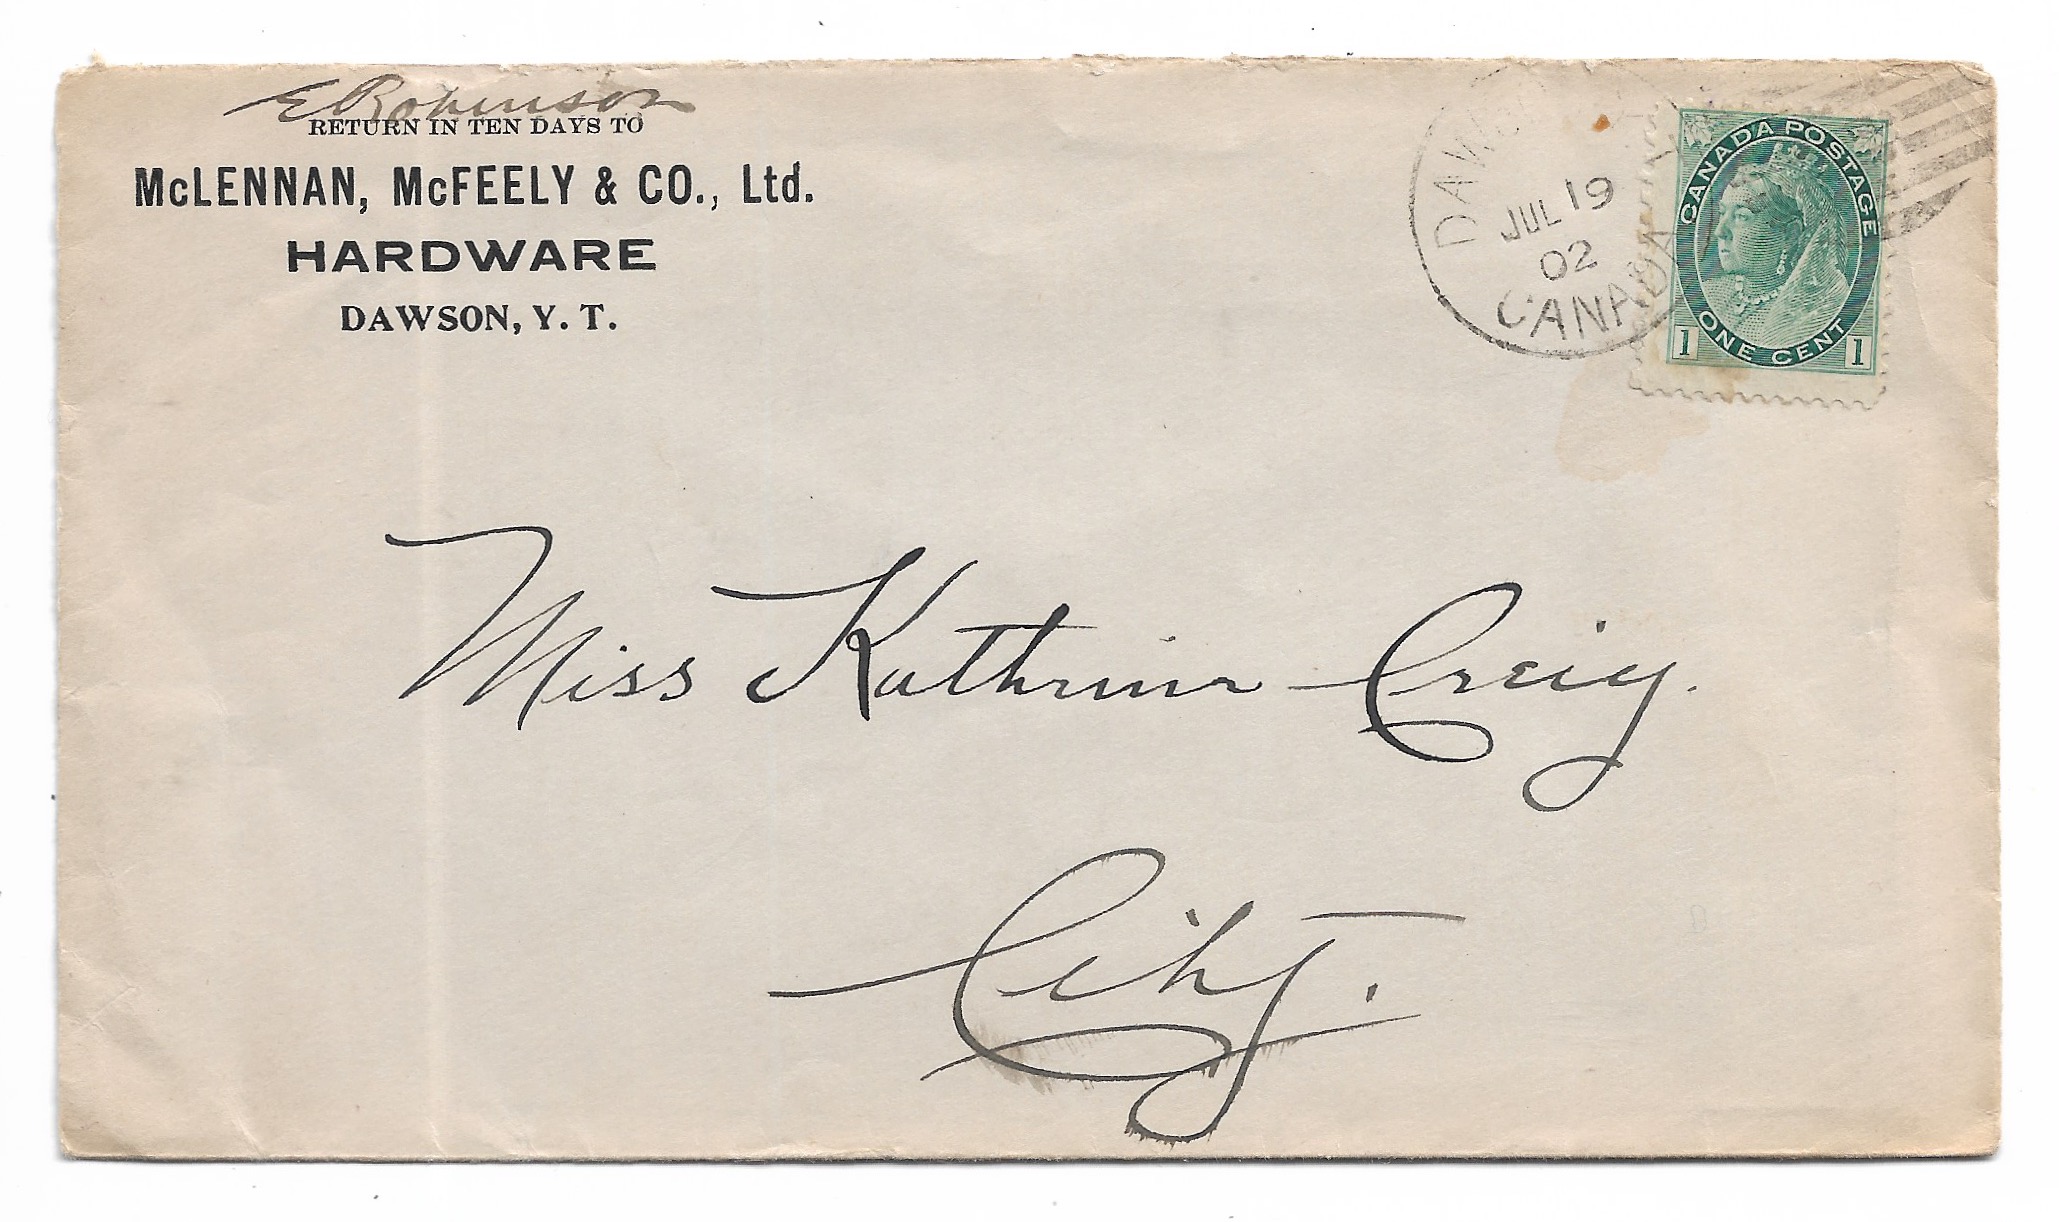 E Robinson
RETURN IN TEN DAYS TO
McLENNAN, McFEELY & CO., Ltd.
HARDWARE
DAWSON, Y. T.
DAWSON
JUL 19
02
CANADA
CANADA POSTAGE
ONE CENT
1 1
Miss Kathrine Creig.
City.